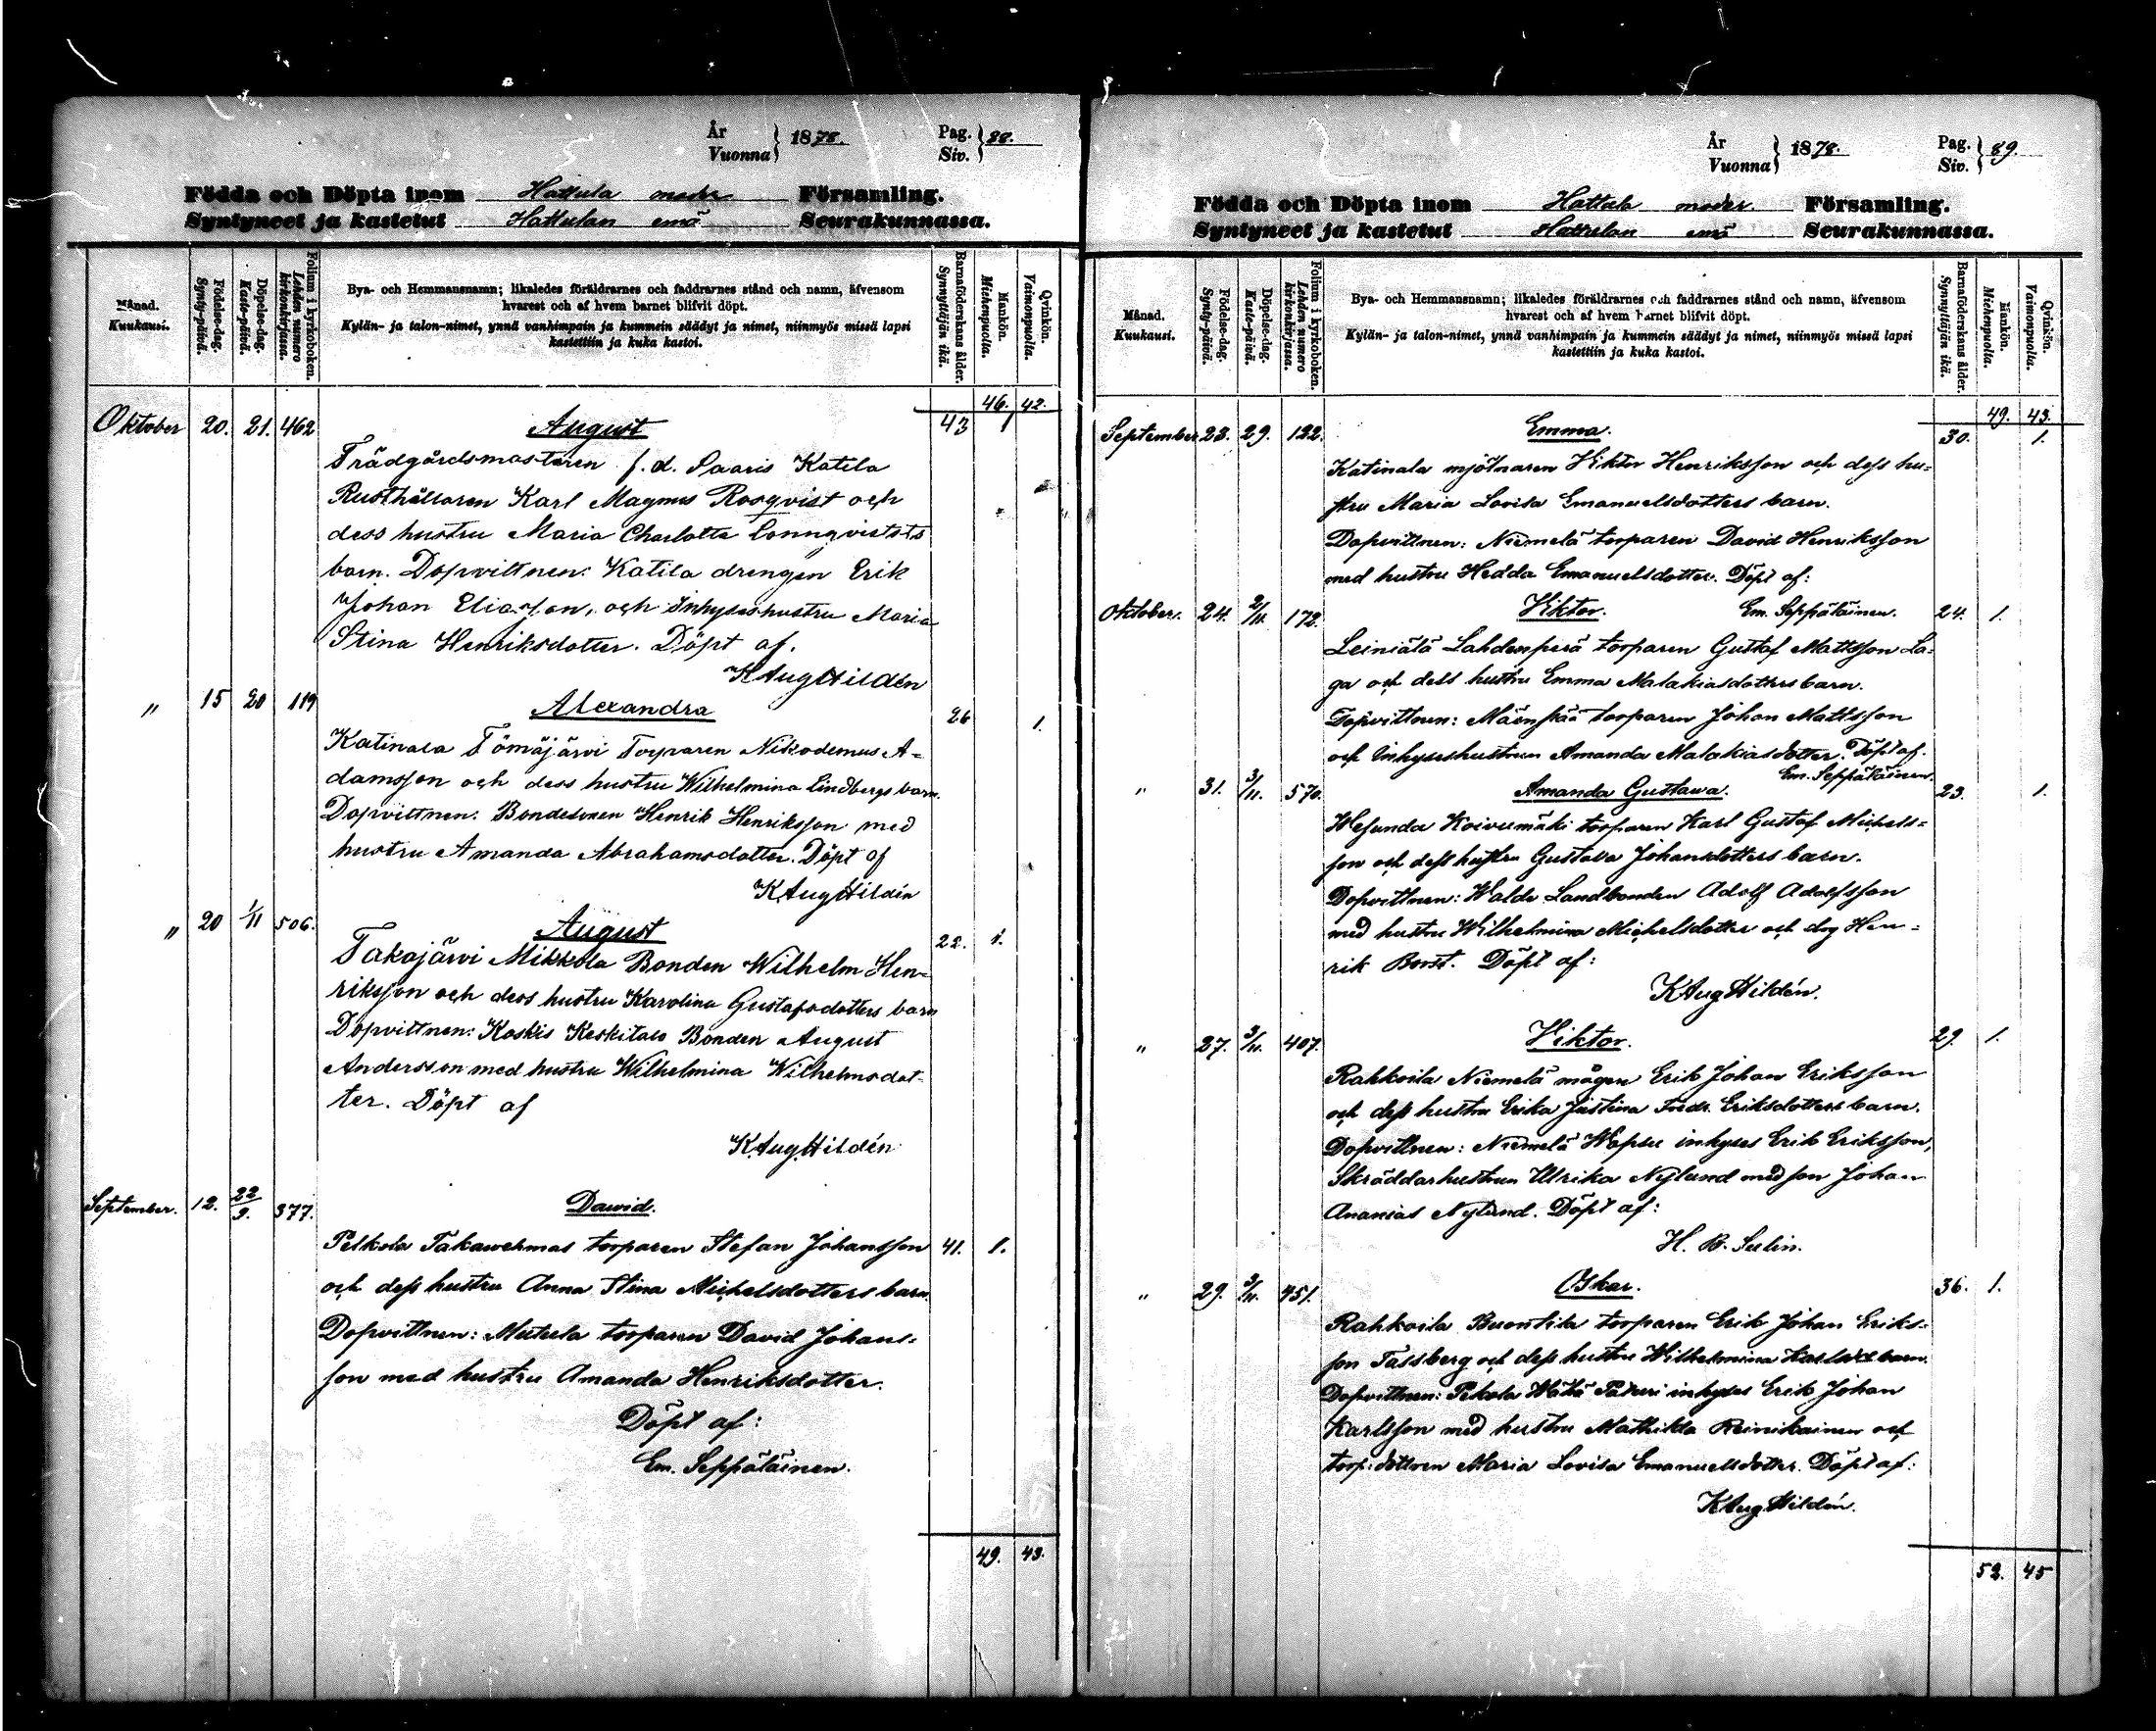 År
Vuonna } 1878.
Pag.
Siv. } 88.
Födda och Döpta inom Hattula moder Församling.
Syntyneet ja kastetut Hattulan emä Seurakunnassa.
Månad.
Kuukausi.
Födelse-dag.
Synty-päivä.
Döpelse-dag.
Kaste-päivä.
Folium i kyrkoboken.
Lehden numero
kirkonkirjassa.
Bya- och Hemmansnamn; likaledes föräldrarnes och faddrarnes stånd och namn, äfvensom
hvarest och af hvem barnet blifvit döpt.
Kylän- ja talon-nimet, ynnä vanhimpain ja kummein säädyt ja nimet, niinmyös missä lapsi
kastettiin ja kuka kastoi.
Barnaföderskans ålder.
Synnyttäjän ikä.
Mankön.
Miehenpuolta.
Qvinkön.
Vaimonpuolta.
46. 42.
Oktober 20. 21. 462 August 43 1
Trädgårdsmastaren f.d. Saaris Katila
Rusthållaren Karl Magnus Rosqvist och
dess hustru Maria Charlotta Lönnqvists
barn. Dopvittnen: Katila drengen Erik
Johan Eliasson, och Inhyseshustru Maria
Stina Henriksdotter. Döpt af.
KAugHildén
" 15 20 119 Alexandra 26 1.
Katinala Tömäjärvi Torparen Nikodemus A-
damsson och dess hustru Wilhelmina Lindbergs barn.
Dopvittnen: Bondesonen Henrik Henriksson med
hustru Amanda Abrahamsdotter. Döpt af
KAugHildén
" 20 1/11 506. August 22. 1.
Takajärvi Mikkola Bonden Wilhelm Hen-
riksson och dess hustru Karolina Gustafsdotters barn
Dopvittnen: Koskis Keskitalo Bonden August
Andersson med hustru Wilhelmina Wilhelmsdot-
ter. Döpt af
KAugHildén
September. 12. 22/9. 377. Dawid.
Pelkola Takawehmas torparen Stefan Johansson 41. 1.
och dess hustru Anna Stina Michelsdotters barn.
Dopvittnen: Mutula torparen David Johans-
son med hustru Amanda Henriksdotter.
Döpt af:
Em. Seppäläinen.
49. 43.
År
Vuonna } 1878.
Pag.
Siv. } 89.
Födda och Döpta inom Hattula moder. Församling.
Syntyneet ja kastetut Hattulan emä Seurakunnassa.
Månad.
Kuukausi.
Födelse-dag.
Synty-päivä.
Döpelse-dag.
Kaste-päivä.
Folium i kyrkoboken.
Lehden numero
kirkonkirjassa.
Bya- och Hemmansnamn; likaledes föräldrarnes och faddrarnes stånd och namn, äfvensom
hvarest och af hvem barnet blifvit döpt.
Kylän- ja talon-nimet, ynnä vanhimpain ja kummein säädyt ja nimet, niinmyös missä lapsi
kastettiin ja kuka kastoi.
Barnaföderskans ålder.
Synnyttäjän ikä.
Mankön.
Miehenpuolta.
Qvinkön.
Vaimonpuolta.
49. 43.
September 23. 29. 122. Emma. 30. 1.
Katinala mjölnaren Viktor Henriksson och dess hu-
stru Maria Lovisa Emanuelsdotters barn.
Dopvittnen: Niemelä torparen David Henriksson
med hustru Hedda Emanuelsdotter. Döpt af:
Oktober. 24. 2/11. 172. Viktor. Em. Seppäläinen. 24. 1.
Leiniälä Lahdenperä torparen Gustaf Mattsson La-
ga och dess hustru Emma Malakiasdotters barn.
Dopvittnen: Mäenpää torparen Johan Mattsson
och Inhyseshustrun Amanda Malakiasdotter. Döpt af.
Em. Seppäläinen.
" 31. 3/11. 570. Amanda Gustawa. 23. 1.
Wesunda Koivumäki torparen Karl Gustaf Michels-
son och dess hustru Gustava Johansdotters barn.
Dopvittnen: Walde Landbonden Adolf Adolfsson
med hustru Wilhelmina Michelsdotter och drg Hen-
rik Borst. Döpt af:
KAugHildén.
" 27. 3/11. 407. Viktor. 29. 1.
Rahkoila Niemelä mågen Erik Johan Eriksson
och dess hustru Erika Justina Fredr. Eriksdotters barn.
Dopvittnen: Niemelä Wapsu inhyses Erik Eriksson,
Skräddarhustrun Ulrika Nylund med son Johan
Ananias Nylund. Döpt af:
H. B. Selin.
" 29. 3/11. 451. Oskar. 36. 1.
Rahkoila Buontila torparen Erik Johan Eriks-
son Tassberg och dess hustru Wilhelmina barn.
Dopvittnen: Pekola Wähä inhyses Erik Johan
Karlsson med hustru Mathilda Reinikainen och
torp.dottren Maria Lovisa Emanuelsdotter. Döpt af:
KAugHildén.
52. 45